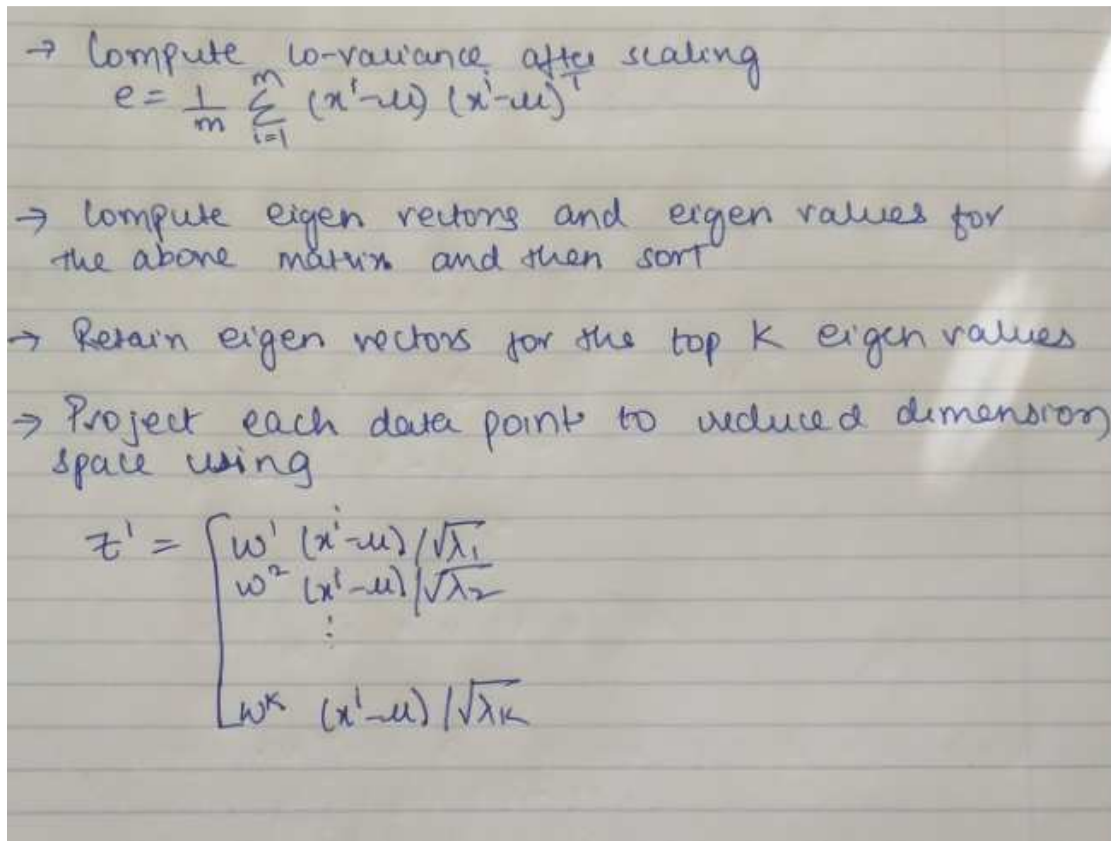 → Compute co-variance after scaling
e = 1/m Σ_{i=1}^{m} (xⁱ-μ) (xⁱ-μ)ᵀ
→ Compute eigen vectors and eigen values for
the above matrix and then sort
→ Retain eigen vectors for the top K eigen values
→ Project each data point to reduced dimension
space using
z¹ = [ w¹ (xⁱ-μ) / √λ₁
w² (xⁱ-μ) / √λ₂
⋮
wᴷ (xⁱ-μ) / √λK